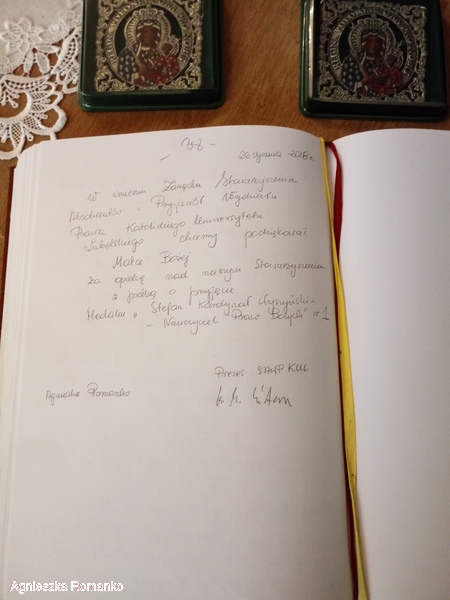 26 stycznia 2018 r.
W imieniu Zarządu Stowarzyszenia
Absolwentów i Przyjaciół Wydziału
Prawa Katolickiego Uniwersytetu
Lubelskiego chcemy podziękować
Matce Bożej
za opiekę nad naszym Stowarzyszeniem
z prośbą o przyjęcie
Medalu „ Stefan Kardynał Wyszyński-
- Nauczyciel Praw Bożych" nr 1
Prezes SAiP KUL
Agnieszka Romanko
Agnieszka Romanko